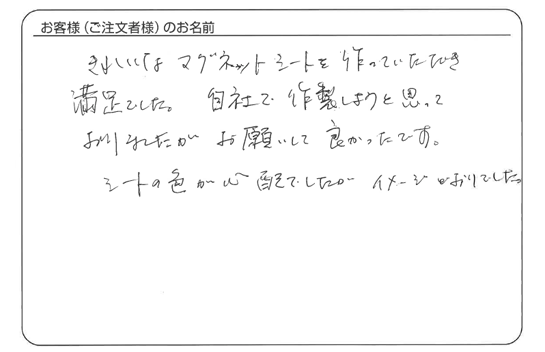 お客様（ご注文者様）のお名前
きれいな マグネットシートを 作っていただき
満足でした。 自社で 作製しようと思って
おりましたが お願いして 良かったです。
シートの色が心配でしたが イメージどおりでした